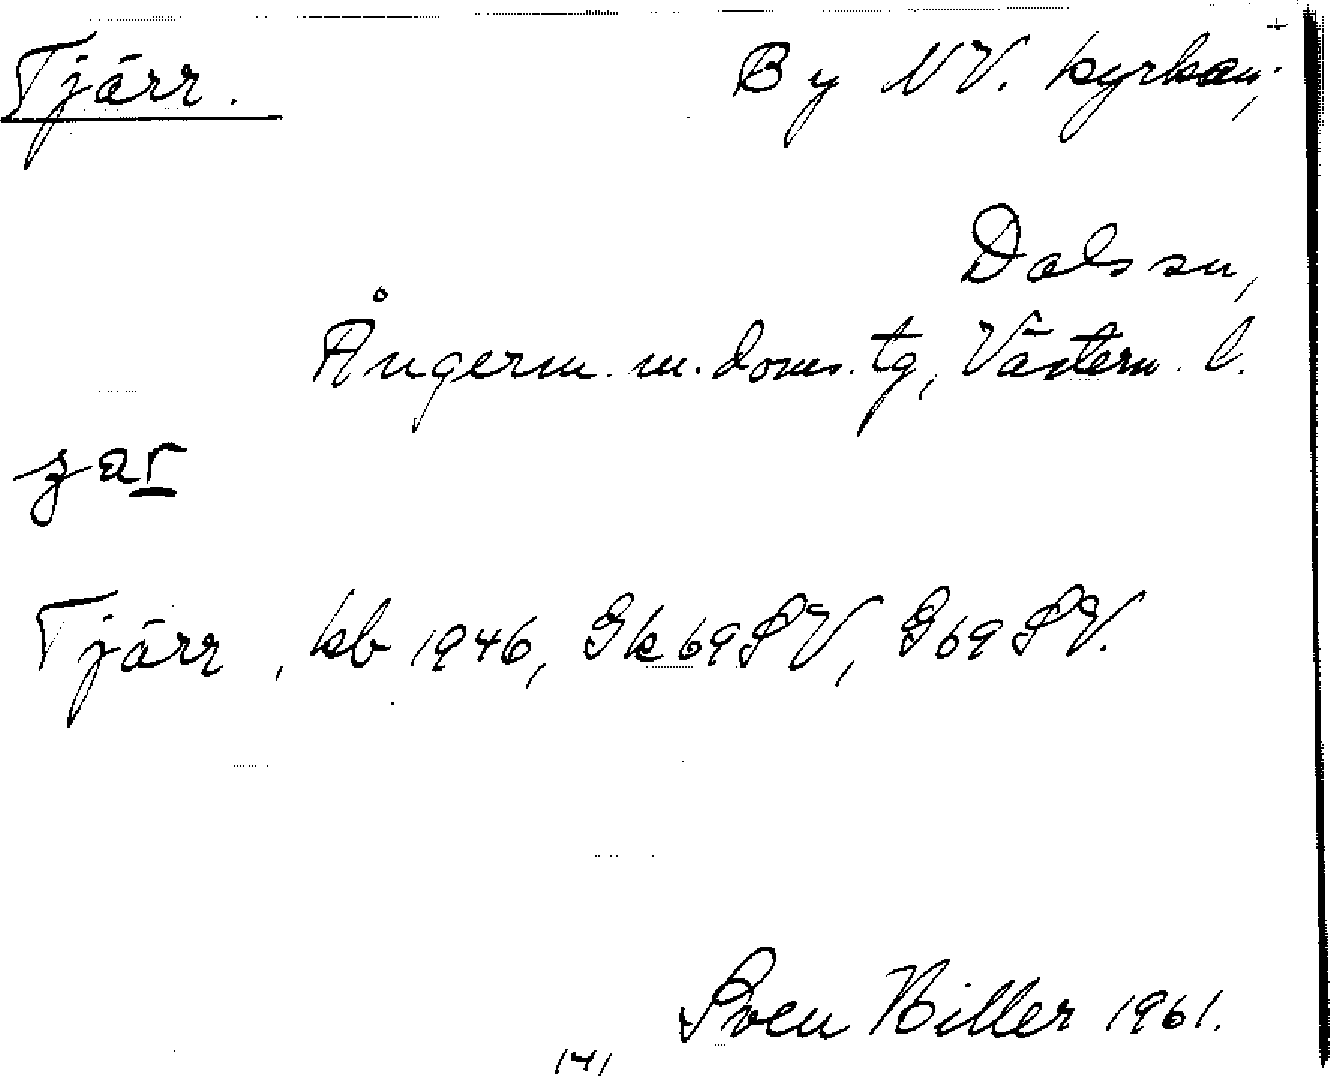 Tjärr. By NV. kyrkan,
Dals sn,
Ångerm. m. doms. tg, Västern. l.
Tjärr, kb 1946, Gk 69 SV, G 69 SV.
Sven Hiller 1961.
141